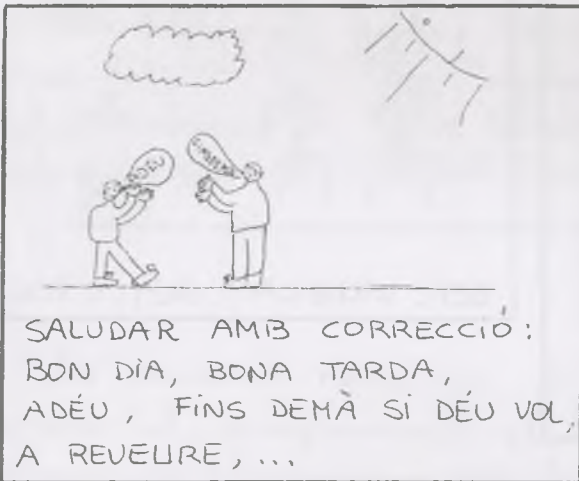 ADÉU
SALUDAR AMB CORRECCIÓ:
BON DÌA, BONA TARDA,
ADÉU, FINS DEMÀ SI DÉU VOL,
A REVEURE, ...